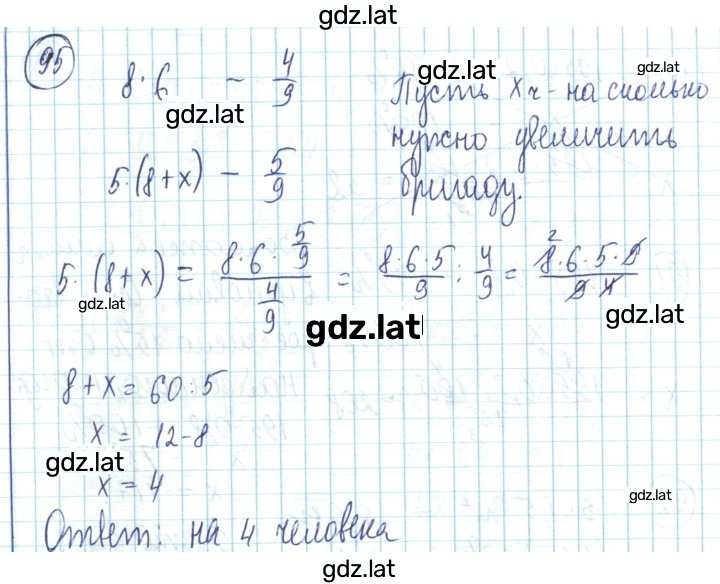 gdz.lat
95
8·6 – 4/9
gdz.lat
gdz.lat
gdz.lat
Пусть х ч - на сколько
нужно увеличить
бригаду.
5·(8+x) – 5/9
5·(8+x) = (8·6·5/9)/(4/9) = (8·6·5)/9 : 4/9 = (8·6·5·9)/(9·4)
2
gdz.lat
gdz.lat
gdz.lat
8+x = 60:5
x = 12-8
gdz.lat
x = 4
gdz.lat
Ответ: на 4 человека
gdz.lat